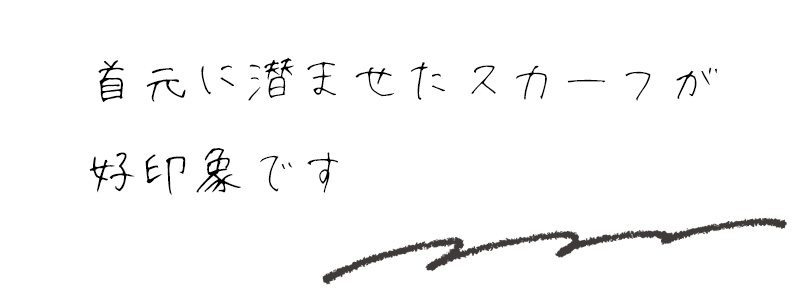 首元に潜ませたスカーフが
好印象です